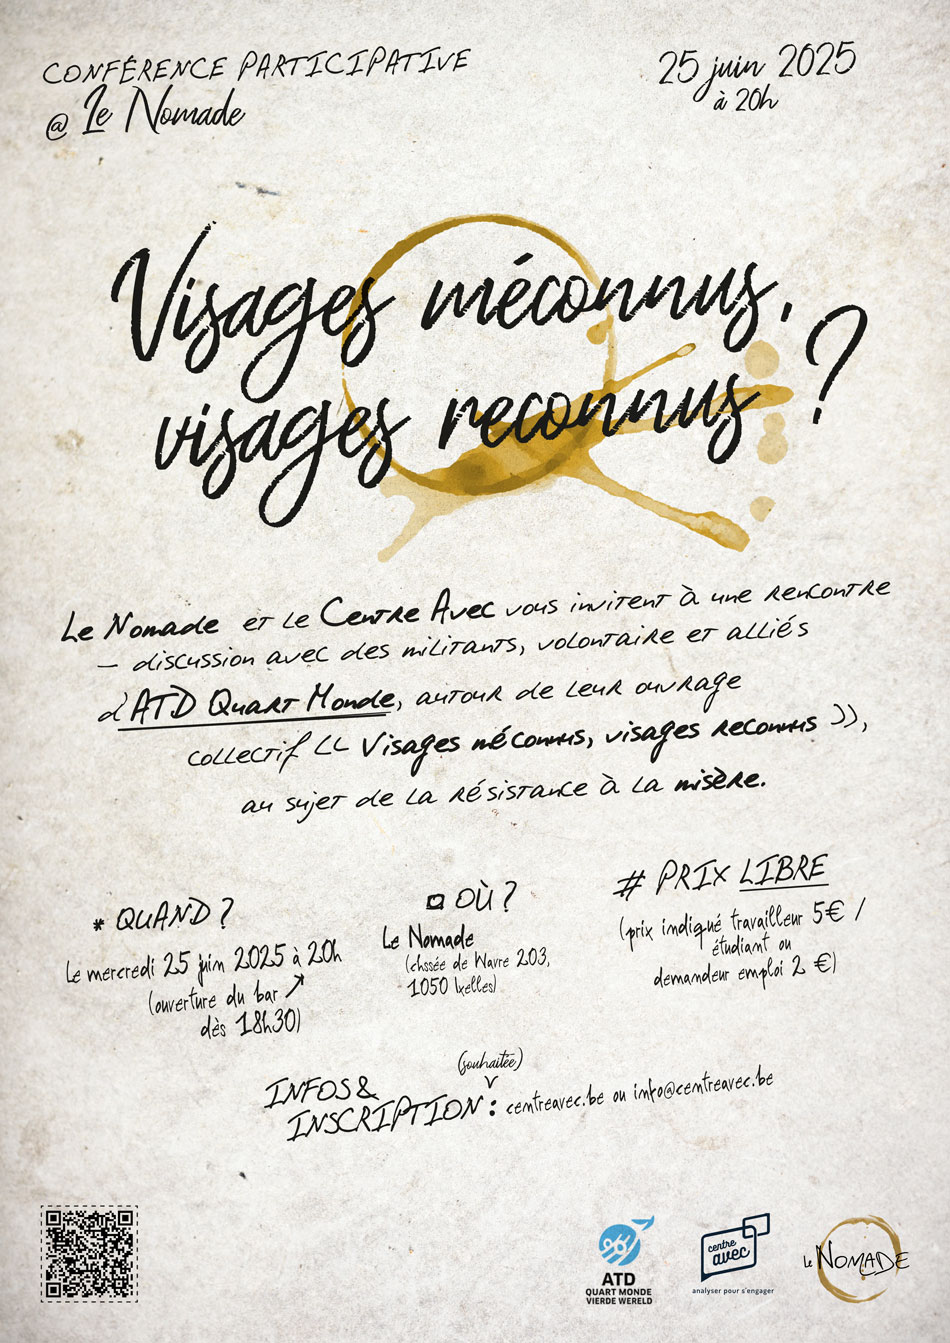 CONFÉRENCE PARTICIPATIVE
@ Le Nomade
25 juin 2025
à 20h
Visages méconnus,
visages reconnus ?
Le Nomade et le Centre Avec vous invitent à une rencontre
– discussion avec des militants, volontaire et alliés
d'ATD Quart Monde, autour de leur ouvrage
collectif « Visages méconnus, visages reconnus »,
au sujet de la résistance à la misère.
* QUAND ?
Le mercredi 25 juin 2025 à 20h
(ouverture du bar
dès 18h30)
OÙ ?
Le Nomade
(chssée de Wavre 203,
1050 Ixelles)
# PRIX LIBRE
(prix indiqué travailleur 5€ /
étudiant ou
demandeur emploi 2 €)
(souhaitée)
INFOS &
INSCRIPTION : centreavec.be ou info@centreavec.be
ATD
QUART MONDE
VIERDE WERELD
centre
avec
analyser pour s'engager
Le NOMADE